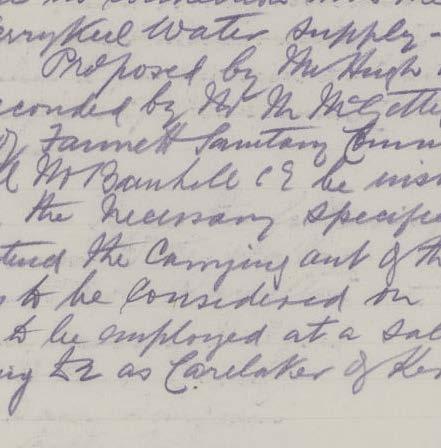 errykeel Water Supply -
Proposed by Mr Hugh
econded by Mr M McGette
of Fannett Sanitary Comm
d Mr Bankhill CE be inst
the necessary specifi
tend the carrying out of th
to be considered on
to be employed at a sal
ing £2 as Caretaker of Ker